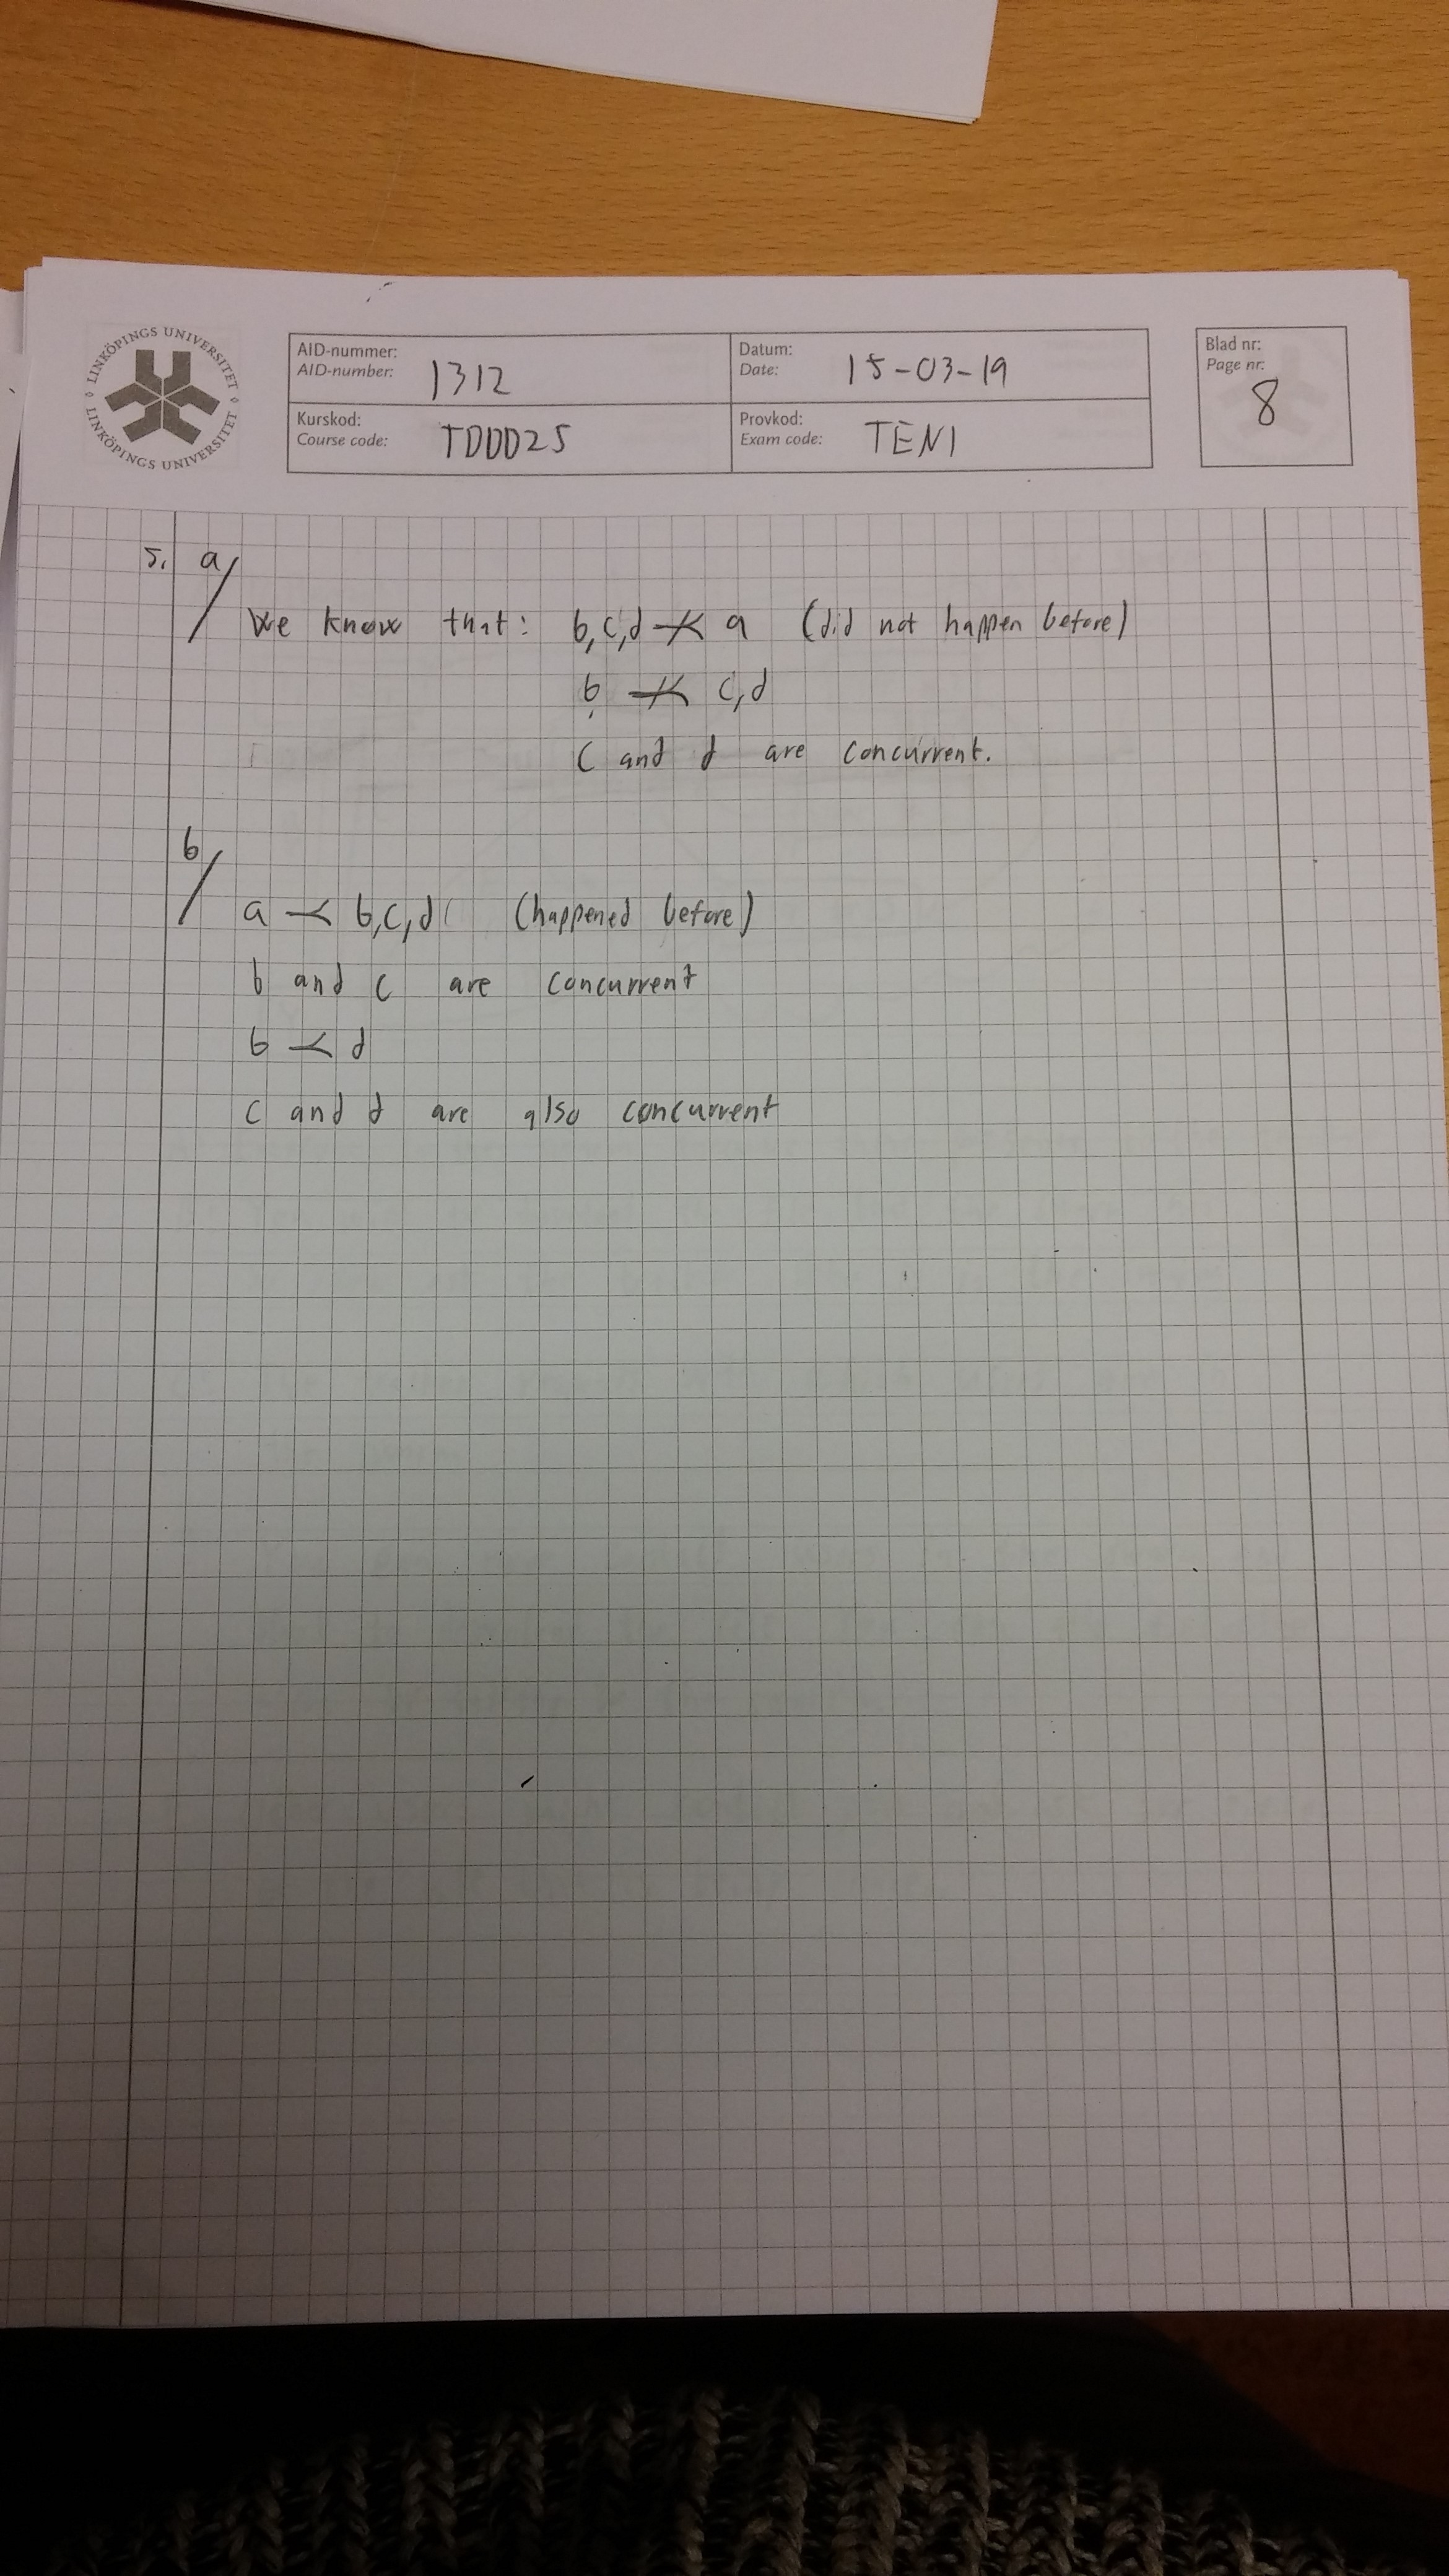 LINKÖPINGS UNIVERSITET
LINKÖPINGS UNIVERSITET
AID-nummer:
AID-number: 1312
Datum:
Date: 15-03-19
Blad nr:
Page nr:
8
Kurskod:
Course code: TDDD25
Provkod:
Exam code: TEN1
5. a/
We know that: b,c,d ⊀ a (did not happen before)
b ⊀ c,d
c and d are concurrent.
b/
a ≺ b,c,d (happened before)
b and c are concurrent
b ≺ d
c and d are also concurrent